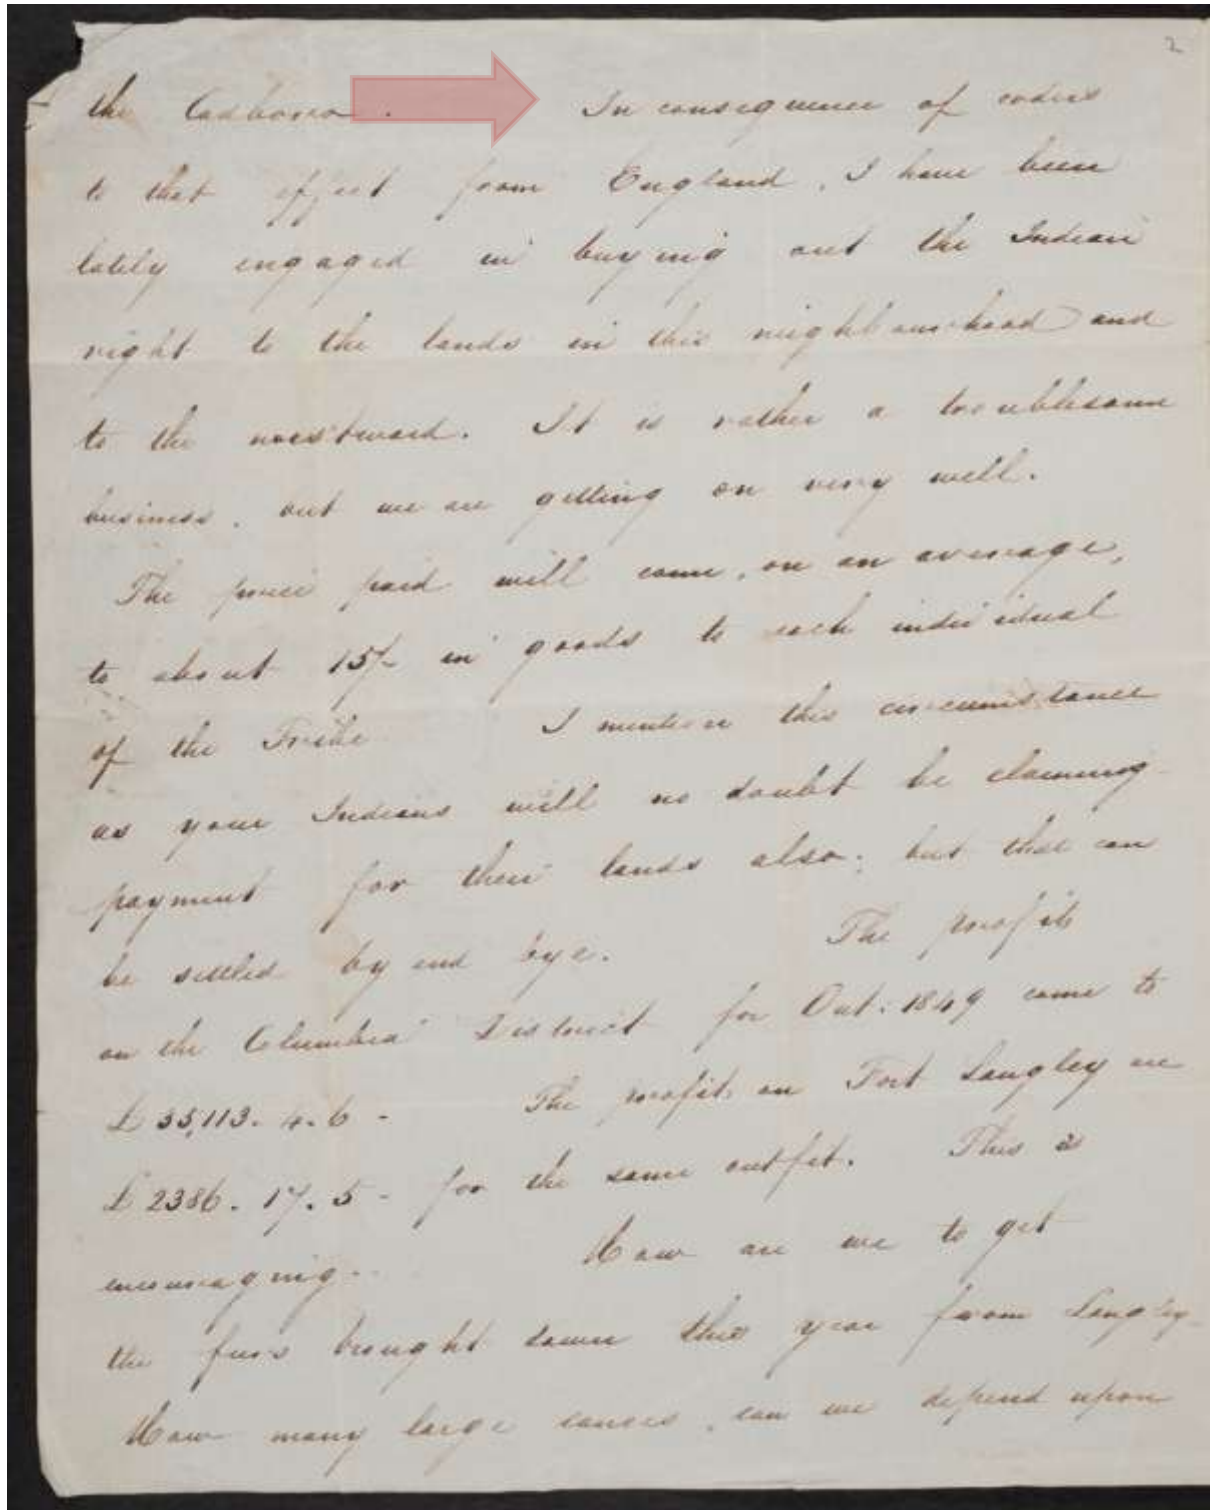 2
the Cadboro. In consequence of orders
to that effect from England, I have been
lately engaged in buying out the Indian
right to the lands in this neighbourhood and
to the westward. It is rather a troublesome
business, but we are getting on very well.
The price paid will come, on an average,
to about 15/- in goods to each individual
of the Tribe I mention this circumstance
as your Indians will no doubt be claiming
payment for their lands also; but that can
be settled by and bye. The profits
on the Columbia District for Out. 1849 come to
£35,113. 4. 6 - The profits on Fort Langley are
£2386. 17. 5 - for the same outfit. This is
encouraging. How are we to get
the furs brought down this year from Langley
How many large canoes, can we depend upon